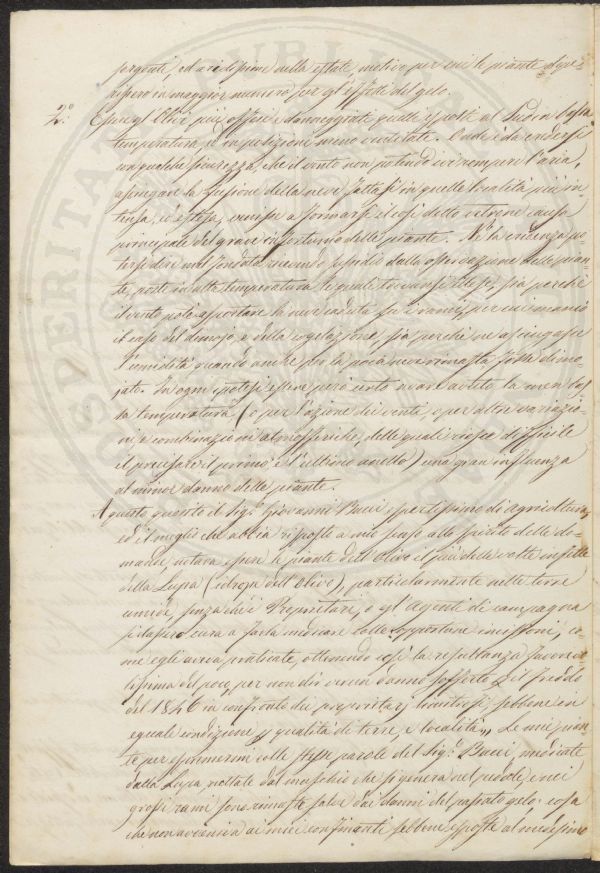 sorgenti, ed aridissime nella estate, motivo per cui le piante deperi-
scono in maggior numero per gl'effetti del gelo.
2.° Che gl'Olivi più offesi e danneggiati quelli esposti al Sud in bassa
temperatura ed in posizioni meno ventilate. Onde è da credersi
con qualche sicurezza, che il vento non potendo ivi rompere l'aria,
asciugare la fusione della neve fattasi in quelle località più in-
tensa, ed estesa, venisse a formarsi il così detto vetrone causa
principale del grave infortunio delle piante. Nè la credenza po-
tersi dire mal fondata ricevendo sussidio dalla osservazione delle pian-
te, poste in alta temperatura le quali trovansi illese, sia perchè
il vento potè asportare la neve caduta su i rami, per cui mancò
il caso del dimojo, e della congelazione, sia perchè ne asciugasse
l'umidità quando anche per la poca neve rimasta fosse dimo-
jata. In ogni ipotesi essere però certo aver avuto la men bas-
sa temperatura (o per l'azione dei venti, o per altre variazio-
ni, e combinazioni atmosferiche, delle quali riesce difficile
il precisare il primo, e l'ultimo anello) una gran influenza
al minor danno delle piante.
A questo quesito il Sig.r Giovanni Bucci espertissimo di agricoltura,
ed il meglio che abbia risposto a mio senso allo spirito delle do-
mande, notava essere le piante dell'Olivo il più delle volte infette
della Lupa (idropa dell'Olivo), particolarmente nelle terre
umide, senza che i Proprietarj, o gl'Agenti di campagna
si dassero cura a farla medicare colle opportune incisioni, co-
me egli aveva praticato, ottenendo così la resultanza favore-
lissima del poco, per non dir verun danno sofferto pel freddo
del 1846 in confronto dei proprietarj limitrofi, sebbene in
eguale condizione, qualità di terre, e località„ Le mie pian-
te per esprimermi colle stesse parole del Sig.r Bucci medicate
dalla Lupa, nettate dal muschio che si genera nel pedale, e nei
grossi rami sono rimaste salve dai danni del passato gelo: cosa
che non avveniva ai miei confinanti sebbene esposte al medesimo